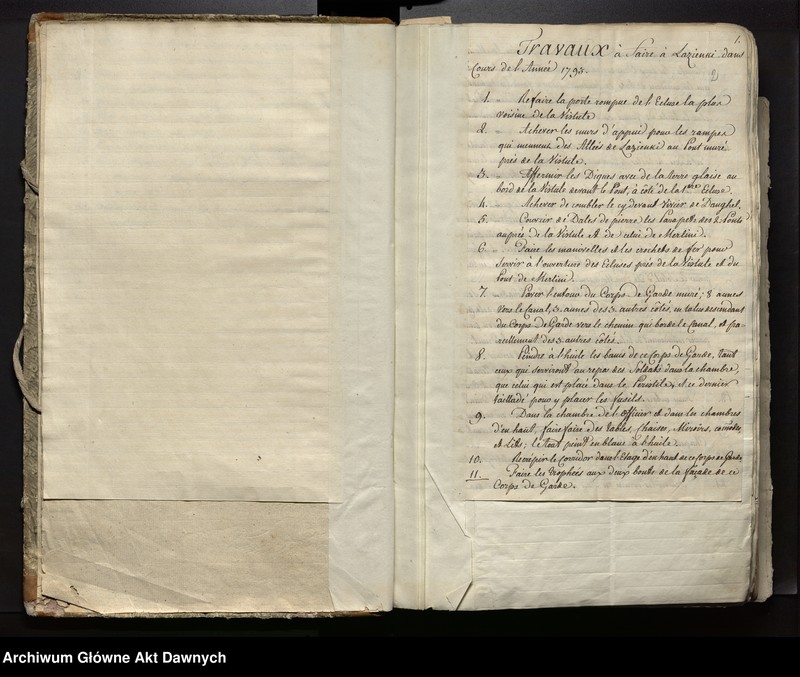 1.
Travaux à faire à Lazienki dans
Cours de l'Année 1793.
1. Refaire la porte rompue de l'Ecluse la plus
voisine de la Vistule
2. Achever les murs d'appui pour les rampes
qui menent des Allées de Lazienki au Pont muré
près de la Vistule.
3. Affermir les Digues avec de la terre glaise au
bord de la Vistule devant le Pont, à côté de la 1ere Ecluse.
4. Achever de combler le cy devant Vivier de Daughel.
5. Couvrir de Dales de pierre les Parapetts des 2 Ponts
auprès de la Vistule et de celui de Merlini.
6. Faire les manivelles et les crochets de fer pour
servir à l'ouverture des Ecluses près de la Vistule et du
Pont de Merlini.
7. Paver l'entour du Corps de Garde muré; 8 aunes
vers le Canal, 3. aunes des 3 autres côtés, en talus descendant
du Corps de Garde vers le chemin qui borde le Canal, et pa-
reillement des 3 autres côtés.
8. Peindre à l'huile les bancs de ce Corps de Garde, tant
ceux qui serviront au repos des Soldats dans la chambre,
que celui qui est placé dans le Peristile, et ce dernier
taillade pour y placer les fusils.
9. Dans la chambre de l'Officier et dans les chambres
d'en haut, faire faire des tables, Chaises, Miroirs, comodes,
et Lits; le tout peint en blanc à l'huile.
10. Recrépir le Corridor dans l'Etage d'en haut de ce Corps de Garde
11. Faire les trophées aux deux bouts de la façade de ce
Corps de Garde.
Archiwum Główne Akt Dawnych